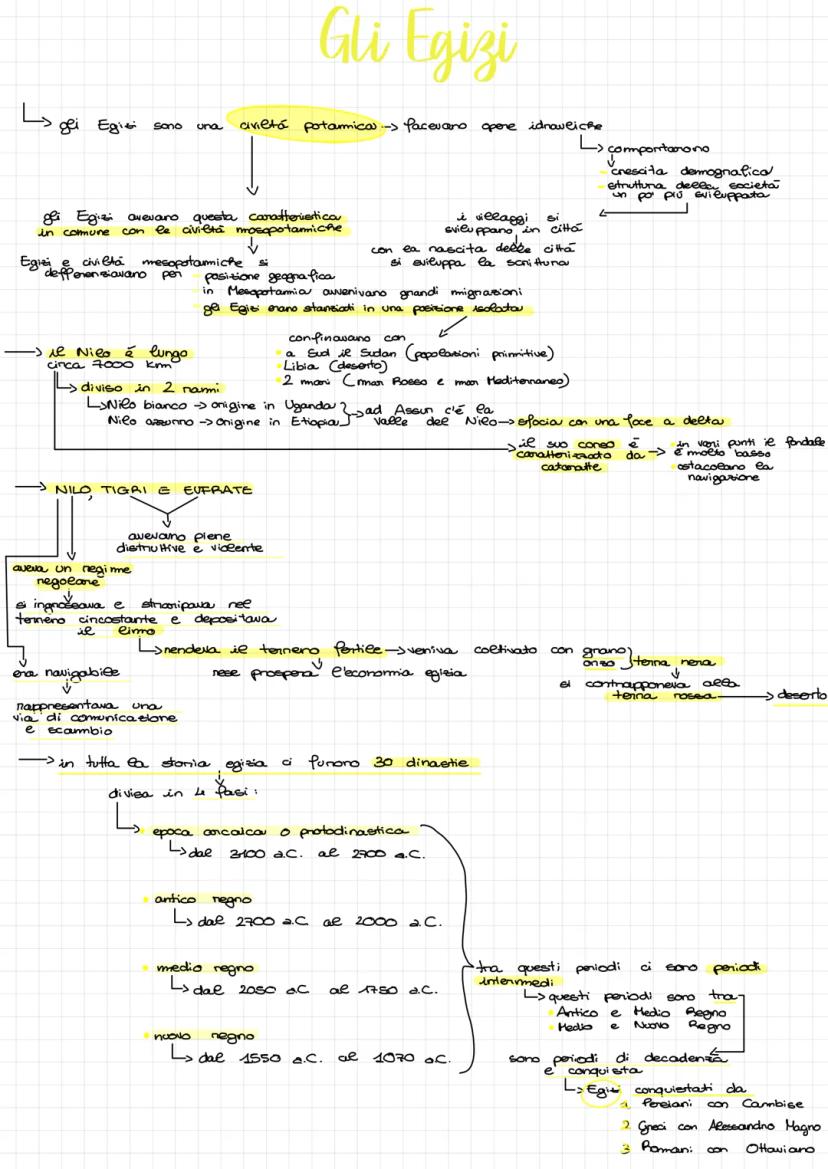 Gli Egizi
gli Egizi sono una civiltá potamica -> facevano opere idrauliche
comportarono
crescita demografica
struttura della societá
un po' più sviluppata
i villaggi si
sviluppano in cittá
con la nascita delle cittá
si sviluppa la scrittura
gli Egizi avevano questa caratteristica
in comune con le civiltá mesopotamiche
Egizi e civiltá mesopotamiche si
defferenziavano per
posizione geografica
in Mesopotamia avvenivano grandi migrazioni
gli Egizi erano stanziati in una posizione isolata
confinavano con
a Sud il Sudan (popolazioni primitive)
Libia (deserto)
2 mari (mar Rosso e mar Mediterraneo)
il Nilo é lungo
circa 7000 km
diviso in 2 rami
Nilo bianco -> origine in Uganda
Nilo azzurro -> origine in Etiopia
ad Assun c'é la
Valle del Nilo -> sfocia con una foce a delta
il suo corso é
caratterizzato da
cataratte
in vari punti il fondale
é molto basso
ostacolano la
navigazione
NILO, TIGRI E EUFRATE
avevano piene
distruttive e violente
aveva un regime
regolare
si ingrossava e straripava nel
terreno circostante e depositava
il limo
rendeva il terreno fertile -> veniva coltivato con grano
orzo
terra nera
rese prospera l'economia egizia
si contrapponeva alla
terra rossa -> deserto
era navigabile
rappresentava una
via di comunicazione
e scambio
in tutta la storia egizia ci furono 30 dinastie
divisa in 4 fasi:
epoca arcaica o protodinastica
dal 3100 a.C. al 2700 a.C.
antico regno
dal 2700 a.C. al 2000 a.C.
medio regno
dal 2050 a.C al 1750 a.C.
nuovo regno
dal 1550 a.C. al 1070 a.C.
tra questi periodi ci sono periodi
intermedi
questi periodi sono tra
Antico e Medio Regno
Medio e Nuovo Regno
sono periodi di decadenza
e conquista
Egizi conquistati da
1 Persiani con Cambise
2 Greci con Alessandro Magno
3 Romani con Ottaviano